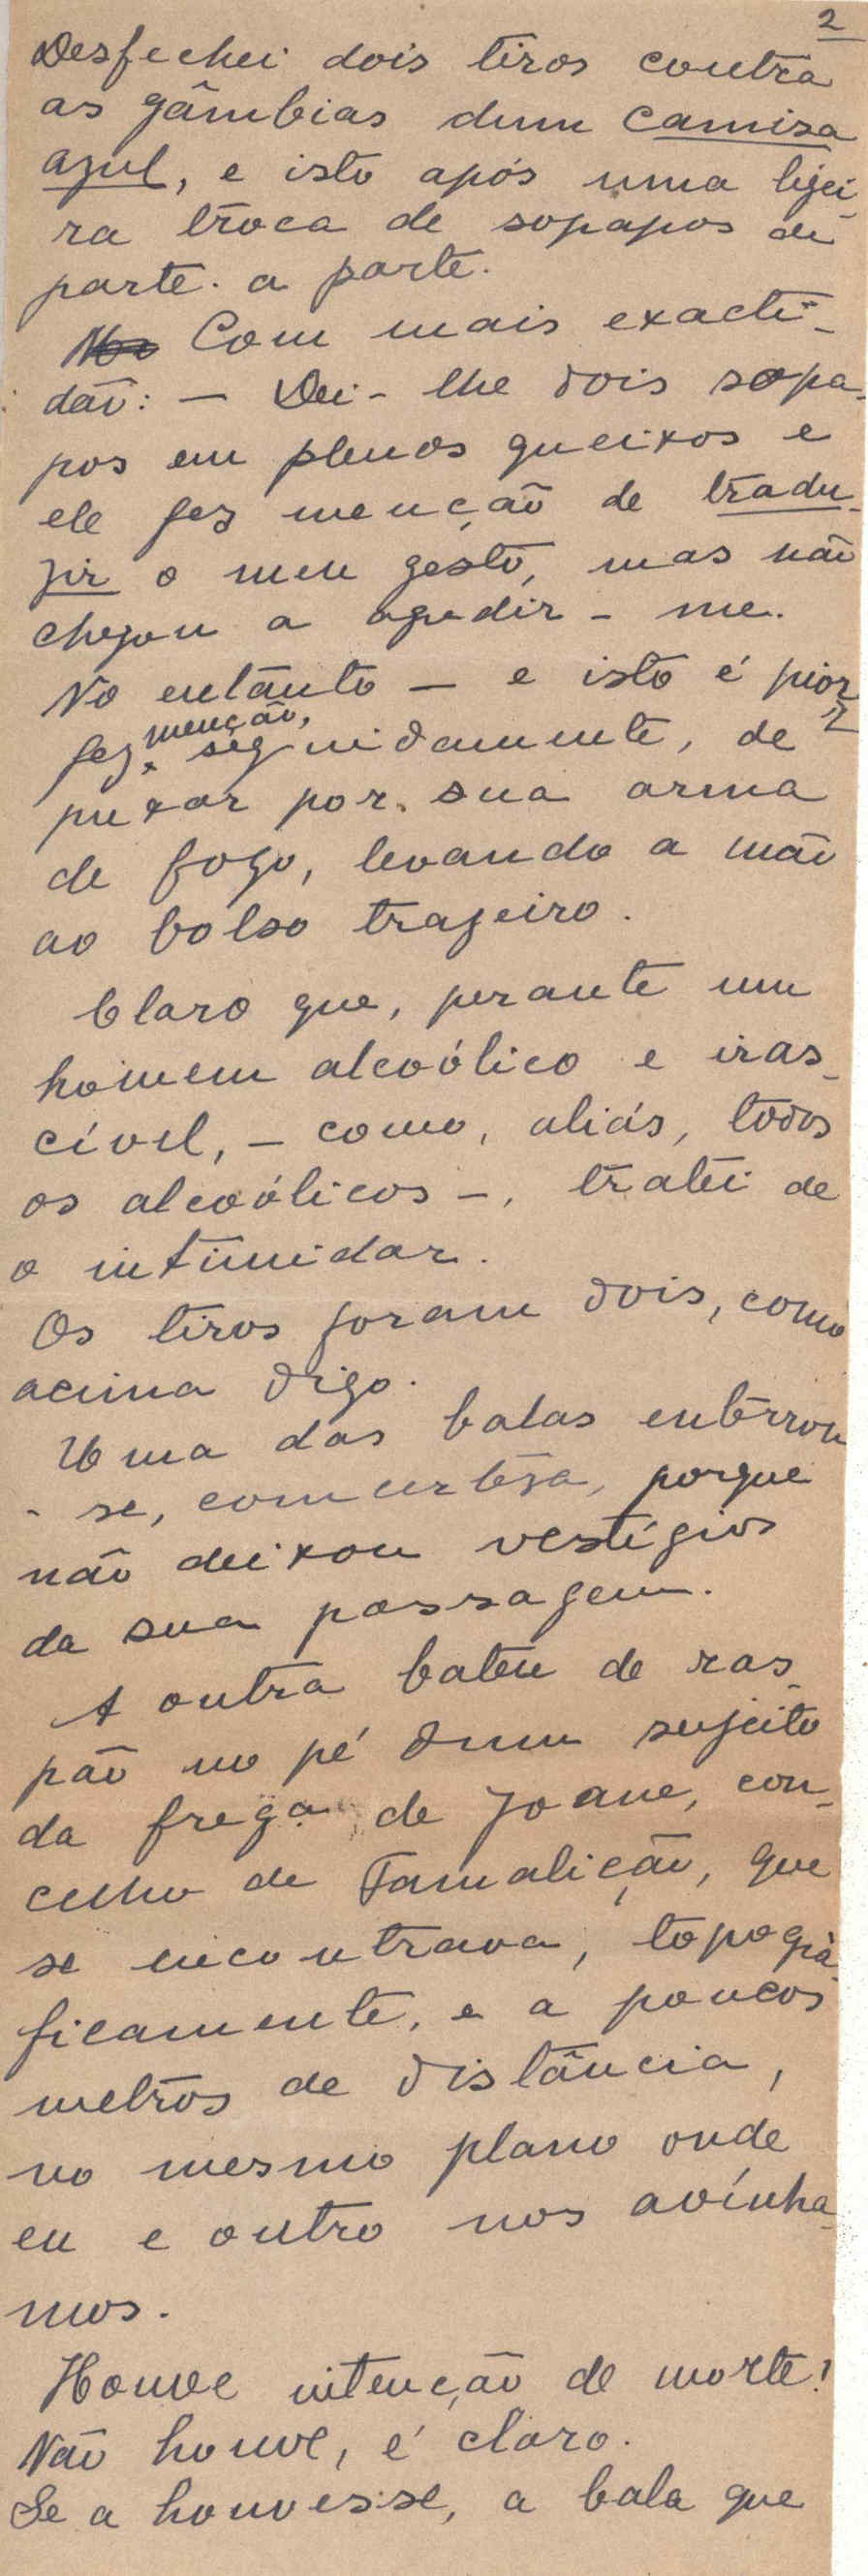 2
Desfechei dois tiros contra
as gâmbias dum camisa
azul, e isto após uma ligei-
ra troca de sopapos de
parte a parte.
Com mais exacti-
dão: — Dei-lhe dois sopa-
pos em plenos queixos e
ele fez menção de tradu-
zir o meu gesto, mas não
chegou a agredir-me.
No entanto — e isto é pior,
menção,
fez seguidamente, de
puxar por sua arma
de fogo, levando a mão
ao bolso trazeiro.
Claro que, perante um
homem alcoólico e iras-
cível, — como, aliás, todos
os alcoólicos —, tratei de
o intimidar.
Os tiros foram dois, como
acima digo.
Uma das balas enterrou
-se, com certeza, porque
não deixou vestígios
da sua passagem.
A outra bateu de ras-
pão no pé dum sujeito
da freg.a de Joane, con-
celho de Famalicão, que
se encontrava, topogrà-
ficamente, e a poucos
metros de distância,
no mesmo plano onde
eu e outro nos avínha-
mos.
Houve intenção de morte?
Não houve, é claro.
Se a houvesse, a bala que